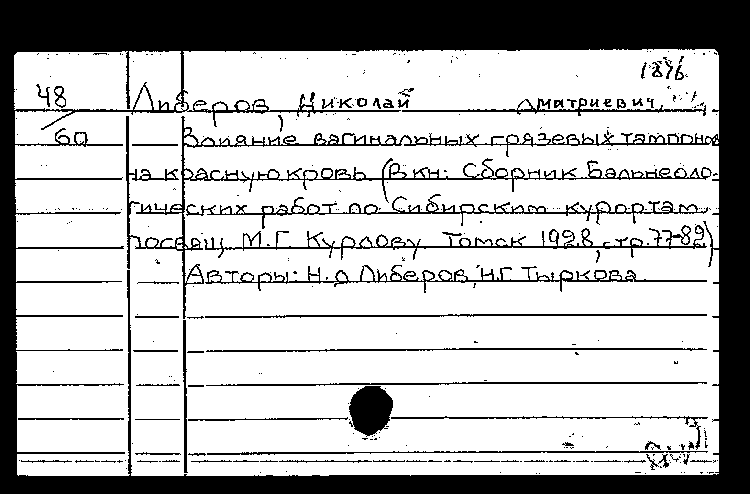 1896
48 Либеров, Николай Дмитриевич,
60 Влияние вагинальных грязевых тампонов
на красную кровь. (В кн: Сборник Бальнеоло-
гических работ по Сибирским курортам,
посвящ. М.Г. Курлову. Томск 1928, стр. 77-82)
Авторы: Н.Д Либеров, Н.Г. Тыркова